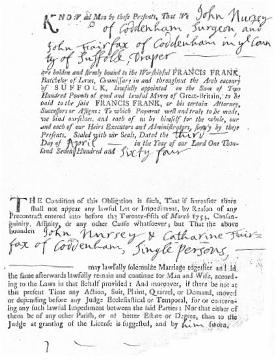 KNOW all Men by these Presents, That We John Nursey
of Coddenham Surgeon and
John Fairfax of Coddenham in ye Coun
ty of Suffolk Draper
are holden and firmly bound to the Worshipful FRANCIS FRANK,
Batchelor of Laws, Commissary in and throughout the Arch-deaconry
of SUFFOLK, lawfully appointed in the Sum of Two
Hundred Pounds of good and lawful Money of Great-Britain, to be
paid to the said FRANCIS FRANK, or his certain Attorney,
Successors or Assigns: To which Payment well and truly to be made,
we bind ourselves, and each of us by himself for the whole, our
and each of our Heirs Executors and Administrators, firmly by these
Presents, Sealed with our Seals, Dated the third
Day of April in the Year of our Lord One Thou-
sand Seven Hundred and Sixty four
THE Condition of this Obligation is such, That if hereafter there
shall not appear any lawful Let or Impediment, by Reason of any
Precontract entered into before the Twenty-fifth of March 1754, Consan-
guinity, Affinity, or any other Cause whatsoever; but That the above
bounden John Nursey & Catharine Fair-
fax of Coddenham, Single Persons
may lawfully solemnize Marriage together and in
the same afterwards lawfully remain and continue for Man and Wife, accord-
ing to the Laws in that Behalf provided: And moreover, if there be not at
this present Time any Action, Suit, Plaint, Quarrel, or Demand, moved
or depending before any Judge Ecclesiastical or Temporal, for or concern-
ing any such lawful Impediment between the said Parties: Nor that either of
them be of any other Parish, or of better Estate or Degree, than to the
Judge at granting of the License is suggested, and by him sworn.